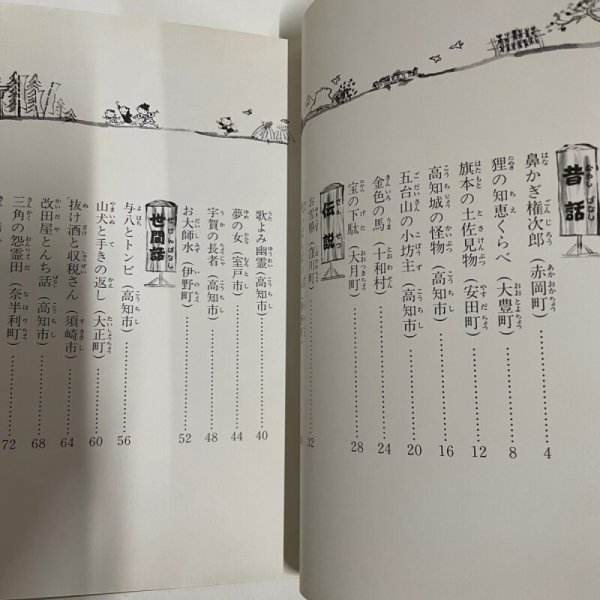 昔話
むかしばなし
鼻かぎ権次郎（赤岡町）………4
狸の知恵くらべ（大豊町）………8
旗本の土佐見物（安田町）………12
高知城の怪物（高知市）………16
五台山の小坊主（高知市）………20
金色の馬（十和村）………24
宝の下駄（大月町）………28
伝説
でんせつ
32
歌よみ幽霊（高知市）………40
夢の女（室戸市）………44
宇賀の長者（高知市）………48
お大師水（伊野町）………52
世間話
せけんばなし
与八とトンビ（高知市）………56
山犬と手きの返し（大正町）………60
抜け酒と収税さん（須崎市）………64
改田屋とんち話（高知市）………68
三角の怨霊田（奈半利町）………72